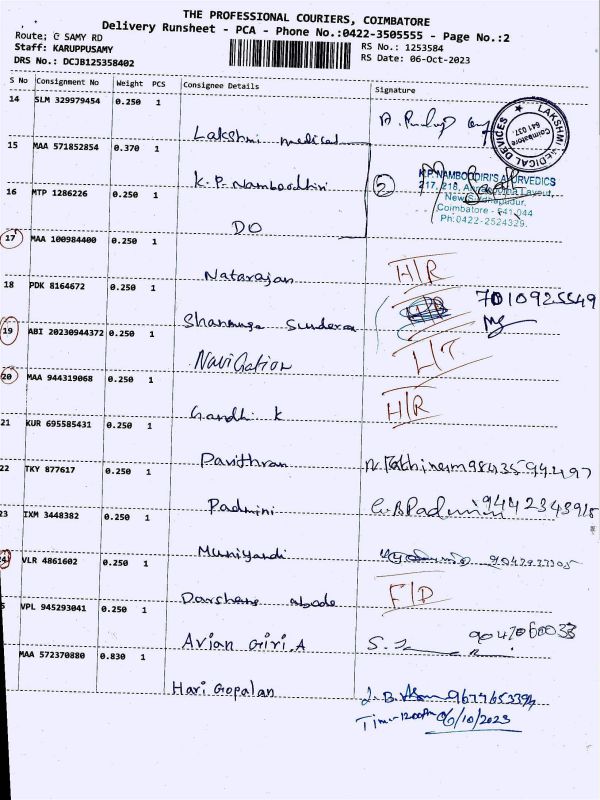 THE PROFESSIONAL COURIERS, COIMBATORE
Delivery Runsheet - PCA - Phone No.:0422-3505555 - Page No.:2
Route; C SAMY RD
RS No.: 1253584
Staff: KARUPPUSAMY
RS Date: 06-Oct-2023
DRS No.: DCJB125358402
S No Consignment No Weight PCS Consignee Details Signature
14 SLM 329979454 0.250 1
Lakshmi medical
LAKSHMI MEDICAL DEVICES
Coimbatore
641 037.
15 MAA 571852854 0.370 1
K.P. Namboodhiri
2
K.P.NAMBOODIRI'S AYURVEDICS
217, 218, Layout,
New Siddhapudur,
Coimbatore - 641 044
Ph:0422-2524329.
16 MTP 1286226 0.250 1
DO
17 MAA 100984400 0.250 1
Natarajan H/R
18 PDK 8164672 0.250 1
Shanmuga Sunderam 7010925549
19 ABI 20230944372 0.250 1
Navigation L/T
20 MAA 944319068 0.250 1
Gandhi K H/R
21 KUR 695585431 0.250 1
Pavithran 9843594497
22 TKY 877617 0.250 1
Padmini Padmini 9442343918
23 IXM 3448382 0.250 1
Muniyandi
24 VLR 4861602 0.250 1
Darshana abode F/D
5 VPL 945293041 0.250 1
Avian Giri.A 9047060033
MAA 572370880 0.830 1
Hari Gopalan
J.B. 9677653394
Time-1200Pm 06/10/2023